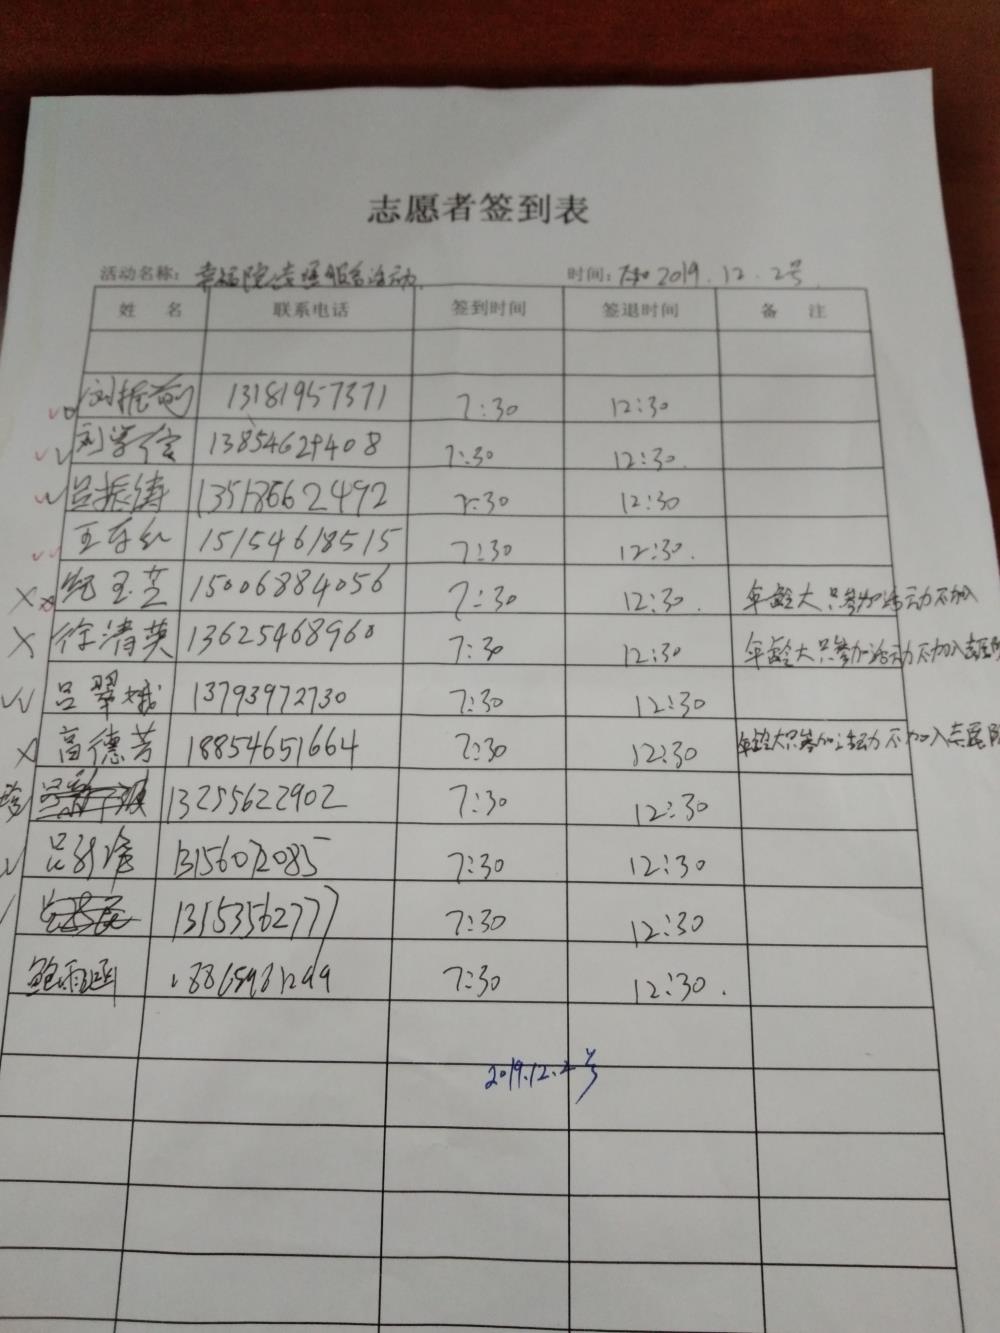 志愿者签到表
活动名称: 幸福院 服务活动 时间: 2019.12.2号
姓 名 联系电话 签到时间 签退时间 备 注
刘振 13181957371 7:30 12:30
刘学信 13854629408 7:30 12:30.
吕振涛 13518662492 7:30 12:30
王 红 15154618515 7:30 12:30.
玉芝 15006884056 7:30 12:30. 年龄大只参加活动不加
徐清英 13625468960 7:30 12:30 年龄大只参加活动不加入志愿队
吕翠娥 13793972730 7:30 12:30
高德芳 18854651664 7:30 12:30 年龄大只参加活动不加入志愿队
13255622902 7:30 12:30
吕 13156072085 7:30 12:30
13153562777 7:30 12:30
鲍雨函 7:30 12:30.
2019.12.2号